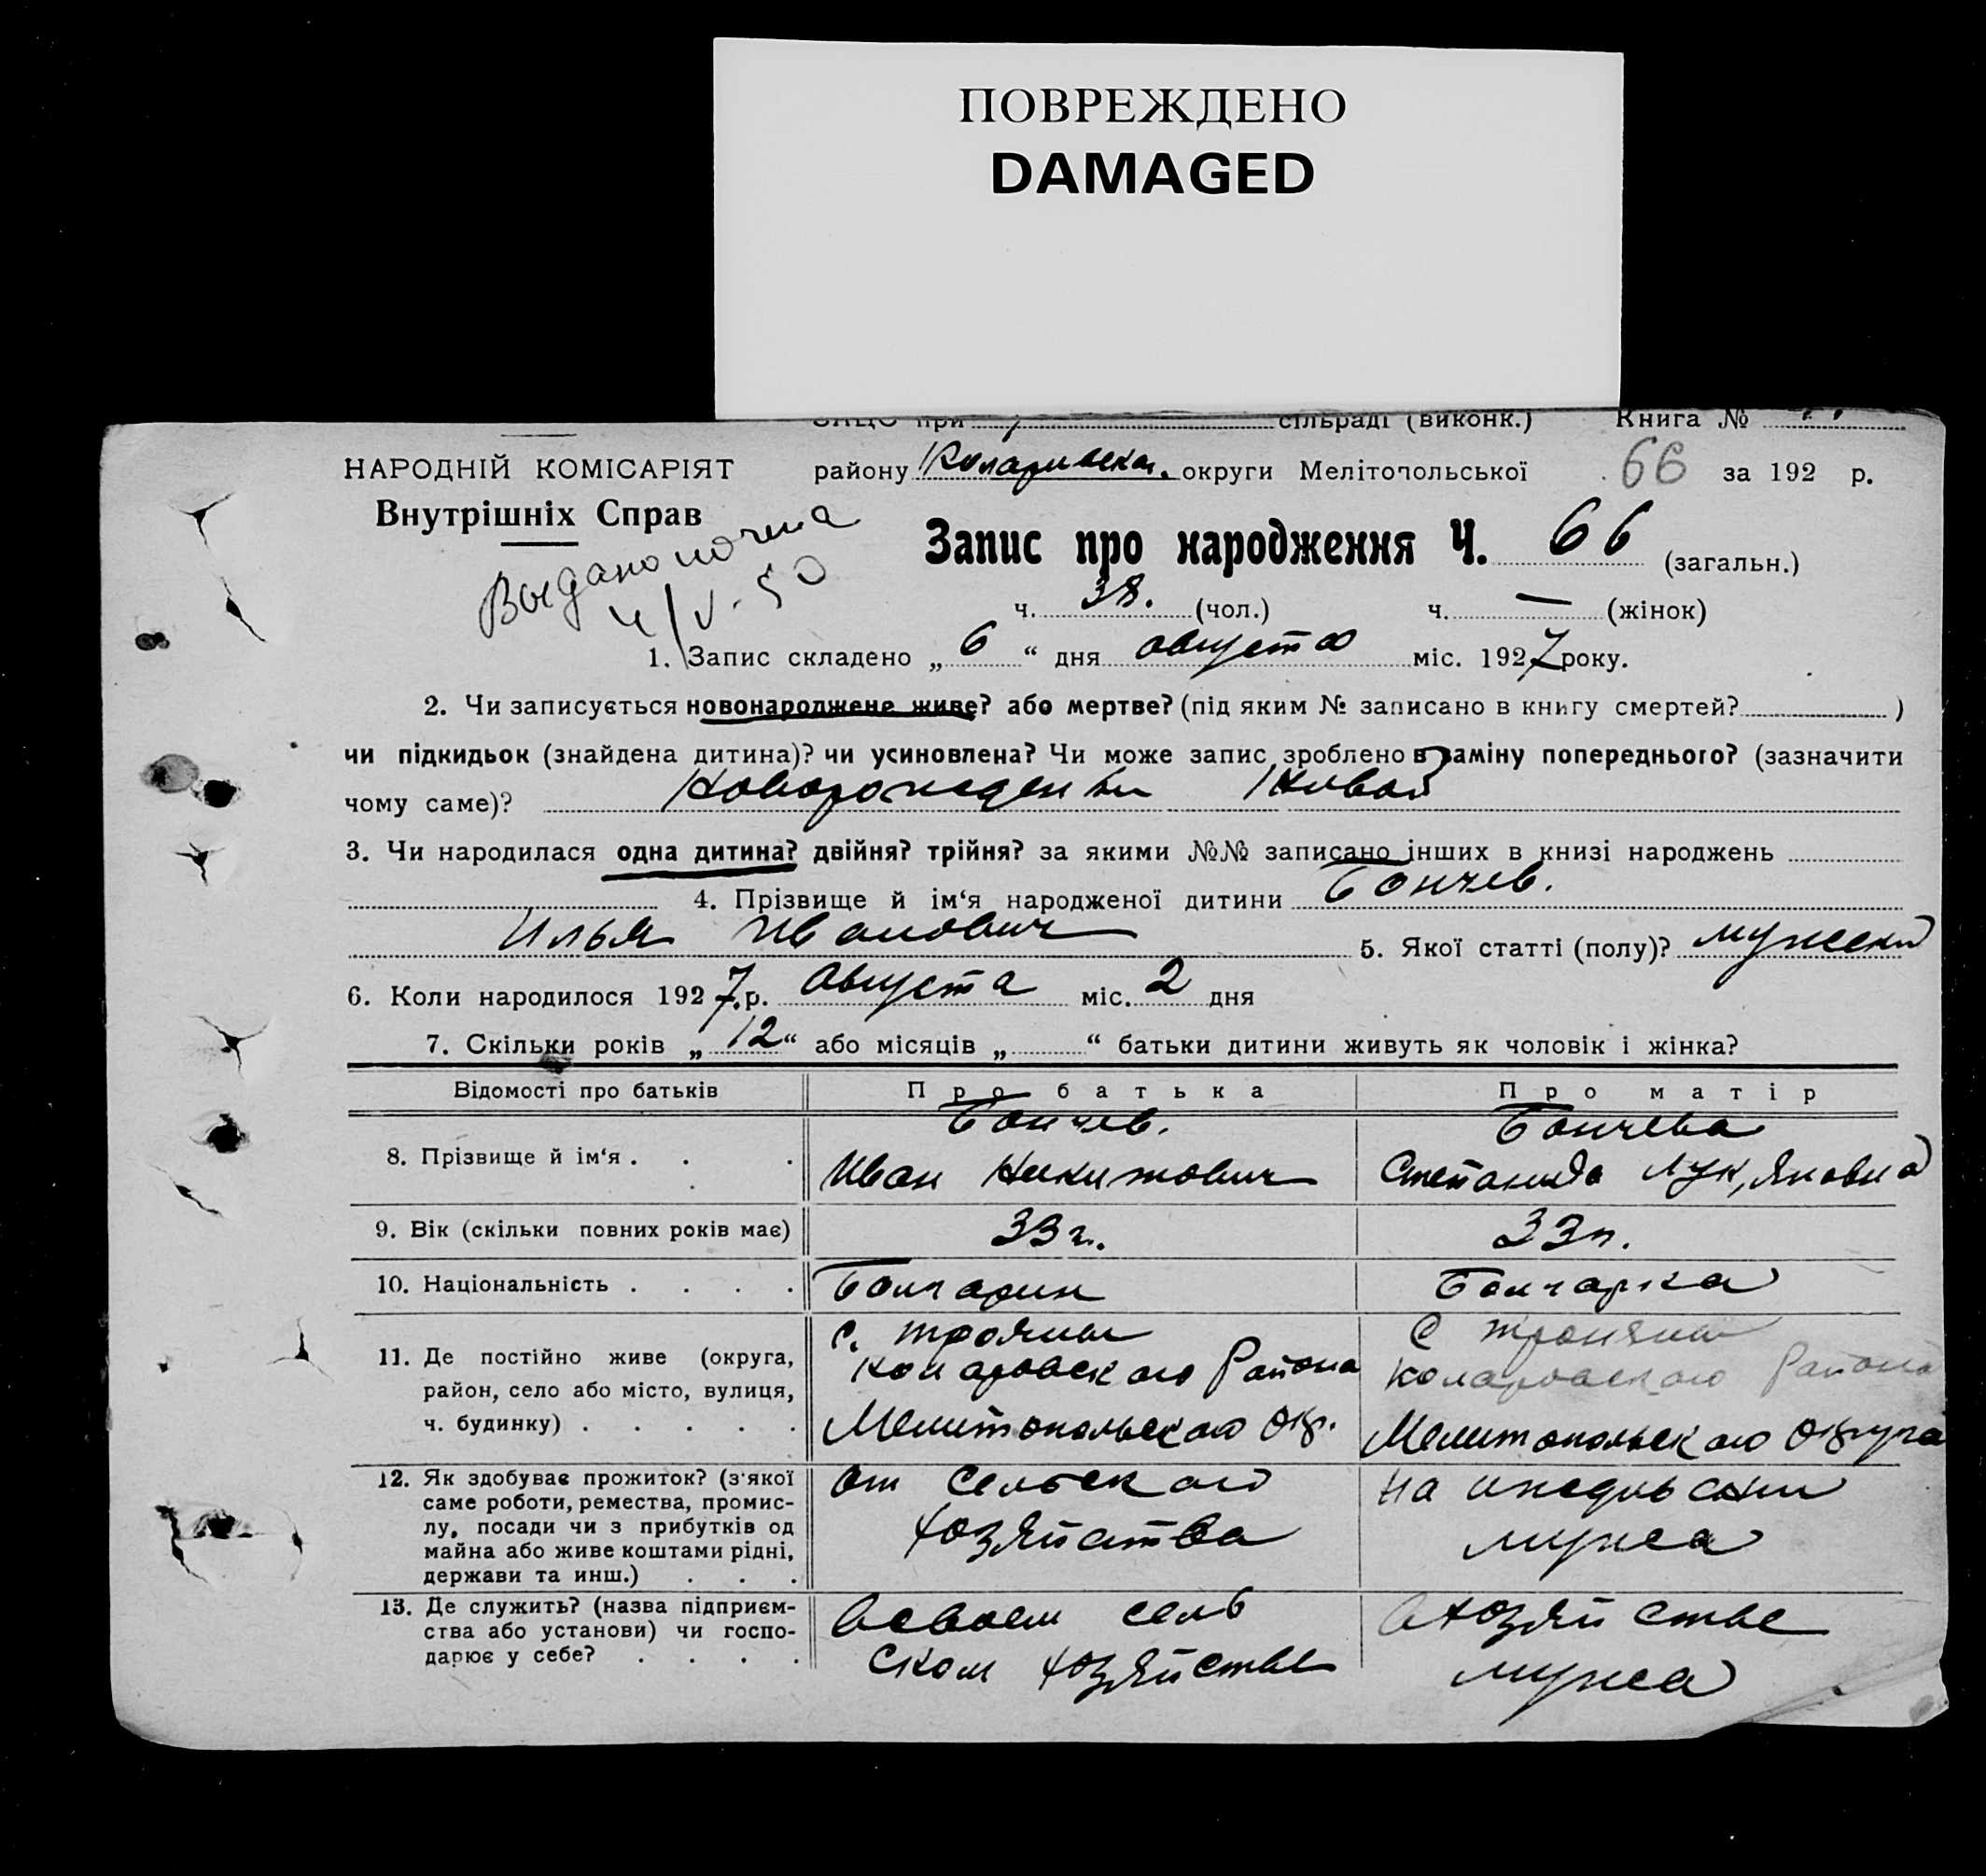 ПОВРЕЖДЕНО
DAMAGED
при сільраді (виконк.) Книга №
НАРОДНІЙ КОМІСАРІЯТ
Внутрішніх Справ
району Коларовск. округи Мелітопольської 66 за 192 р.
Выдано
4/V-50
Запис про народження Ч. 66 (загальн.)
ч. 38. (чол.) ч. — (жінок)
1. Запис складено „ 6 “ дня августа міс. 1927 року.
2. Чи записується новонароджене живе? або мертве? (під яким № записано в книгу смертей? )
чи підкидьок (знайдена дитина)? чи усиновлена? Чи може запис зроблено в заміну попереднього? (зазначити
чому саме)? Новорожеден Живой
3. Чи народилася одна дитина? двійня? трійня? за якими №№ записано інших в книзі народжень
4. Прізвище й ім‘я народженої дитини Бончев.
Илья Иванович 5. Якої статті (полу)? мужески
6. Коли народилося 1927. р. Августа міс. 2 дня
7. Скільки років „ 12 “ або місяців „ “ батьки дитини живуть як чоловік і жінка?
Відомості про батьків Про батька Про матір
8. Прізвище й ім‘я . . . Бончев. Бончева
Иван Никитович Степанида Лук,яновна
9. Вік (скільки повних років має) 33 г. 33 г.
10. Національність . . . . Болгарин Болгарка
11. Де постійно живе (округа, район, село або місто, вулиця, ч. будинку) . . . . .
с. Трояны
Коларовского Района
Мелитопольского Окр.
с Трояны
Коларовского Района
Мелитопольского Округа
12. Як здобуває прожиток? (з‘якої саме роботи, ремества, промислу, посади чи з прибутків од майна або живе коштами рідні, держави та инш.) . . .
От сельского
хозяйства
на
мужа
13. Де служить? (назва підприємства або установи) чи господарює у себе? . . . .
Всвоем сель
ском хозяйстве
Вхозяйстве
мужа